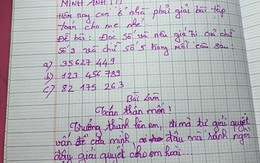 MINH ANH !!!
Hôm nay con ế nhà phải giải bài tập
toán cho mẹ nhé!
Đề bài: Đọc số và nêu giá trị của chữ
số 3 và chữ số 5 trong mỗi câu sau:
a) 35 627 449
b) 123 456 789
c) 82 175 263
Bài làm
Toán thân mến!
Trưởng thành lên em, đi mà tự giải quyết
vấn đề của mình đâu mà hành nghị
đây giải quyết cho em hoài...